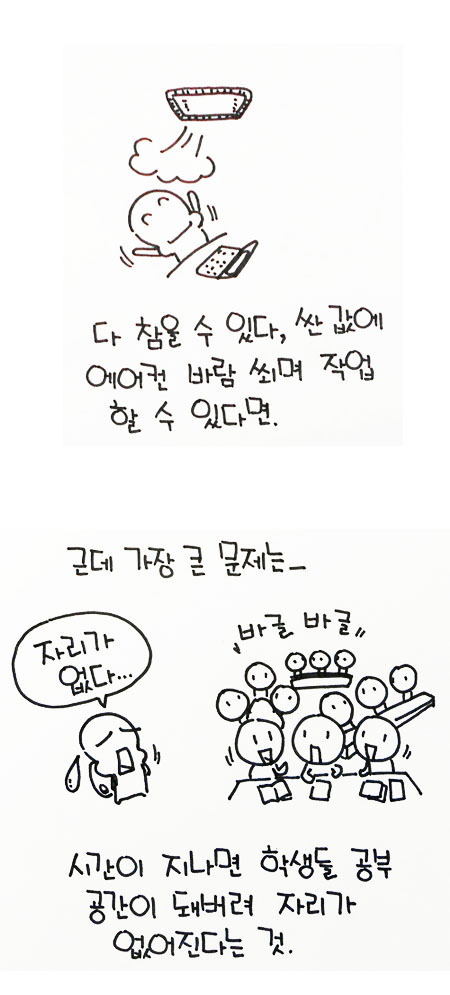 다 참을 수 있다, 싼 값에
에어컨 바람 쐬며 작업
할 수 있다면.
근데 가장 큰 문제는_
자리가
없다...
바글 바글
시간이 지나면 학생들 공부
공간이 돼버려 자리가
없어진다는 것.